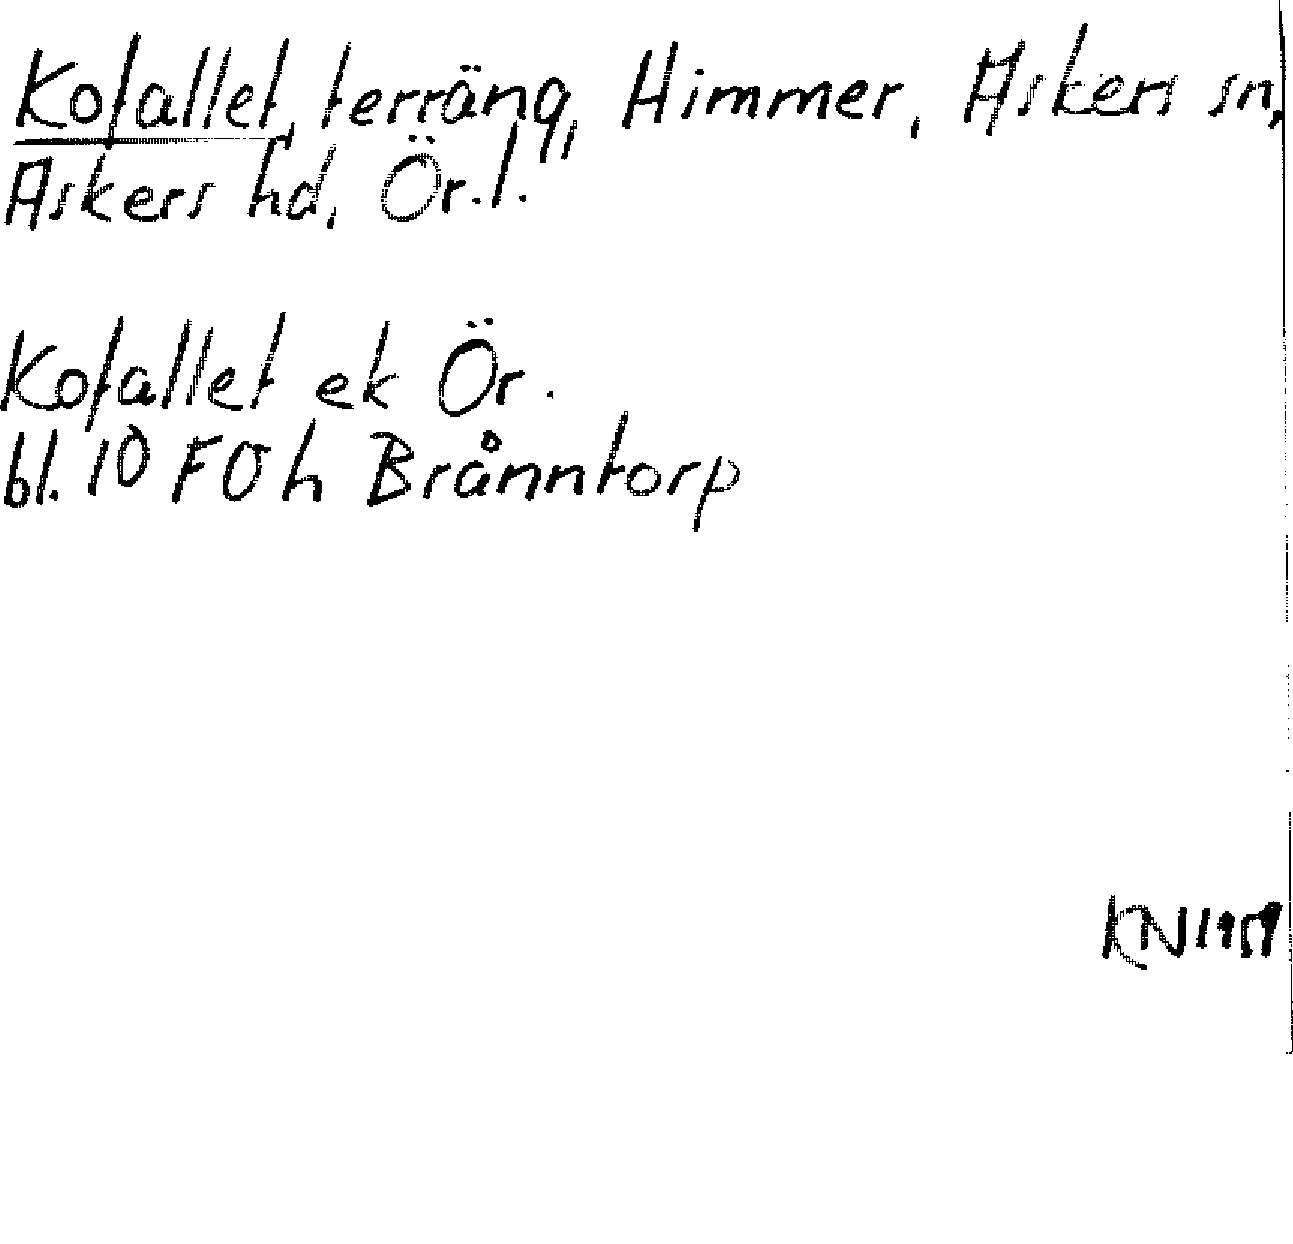 Kofallet, terräng, Himmer, Askers sn,
Askers hd, Ör.l.
Kofallet ek Ör.
bl. 10 F0h Brånntorp
KN1959